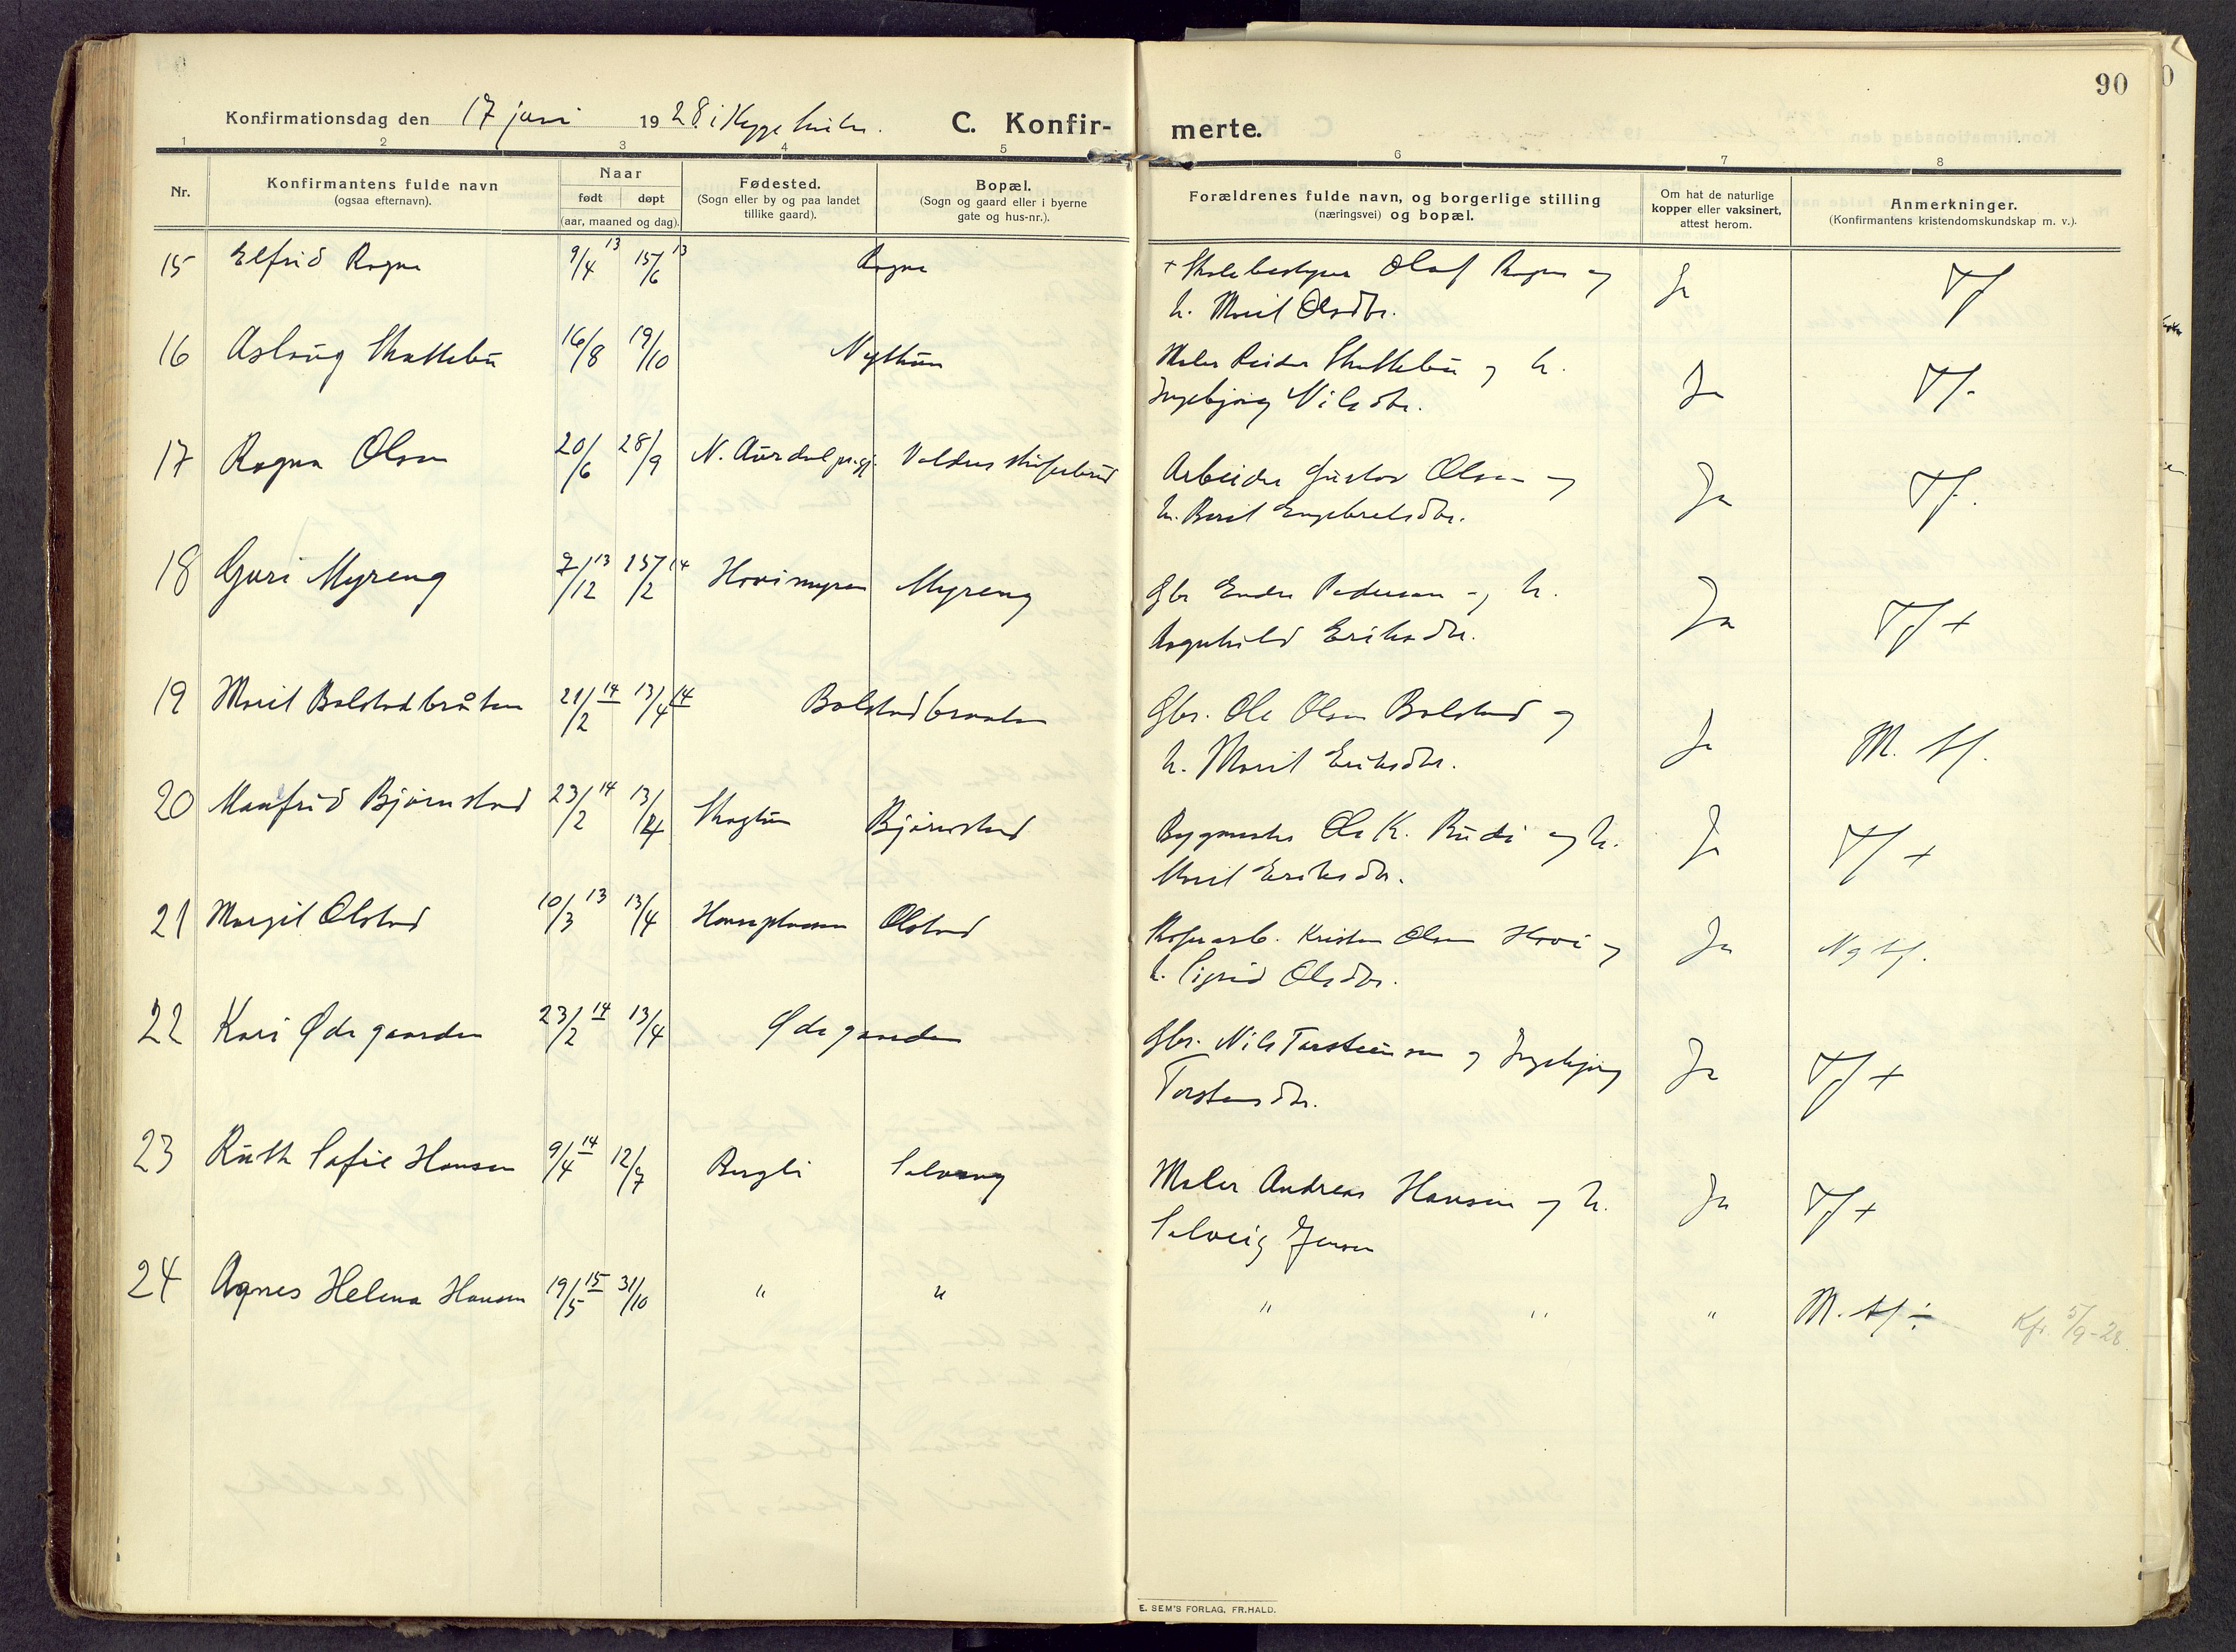 90
Konfirmationsdag den 17 juni 1928 i
C. Konfir- merte.
1 2 3 4 5 6 7 8
Nr.
Konfirmantens fulde navn
(ogsaa efternavn).
Naar
født døpt
(aar, maaned og dag).
Fødested.
(Sogn eller by og paa landet
tillike gaard).
Bopæl.
(Sogn og gaard eller i byerne
gate og hus-nr.).
Forældrenes fulde navn, og borgerlige stilling
(næringsvei) og bopæl.
Om hat de naturlige
kopper eller vaksinert,
attest herom.
Anmerkninger.
(Konfirmantens kristendomskundskap m. v.).
15 Elfrid Rogne 9/4 13 15/6 13 Rogne + Skolebestyrer Olaf Rogne og Ja Tf
h. Marit Olsdtr.
16 Aslaug Skattebu 16/8 19/10 Nythun Maler Reidar Skattebu og h. Ja Tf.
Ingebjørg Nilsdtr.
17 Ragna Olsen 20/6 28/9 N. Aurdal prgj. Valdres skiferbrud Arbeider Gustav Olsen og Ja Tf.
h. Berit Engebretsdtr.
18 Guri Myreng 7/12 13 15/2 14 Hovimyren Myreng Gbr Endre Pedersen og h. Ja Tf +
Ragnhild Eriksdtr.
19 Marit Bolstadbråten 21/2 14 13/4 14 Bolstadbraaten Gbr. Ole Olsen Bolstad og Ja M. tf.
h. Marit Eriksdtr.
20 Manfrid Bjørnstad 23/2 14 13/4 Skogtun Bjørnstad Bygmester Ole K. Rudi og h. Ja Tf +
Marit Eriksdtr.
21 Margit Olstad 10/3 13 13/4 Olstad Skiferarb. Kristen Olsen Hovi og Ja Ng tf.
h. Sigrid Olsdtr.
22 Kari Ødegaarden 23/2 14 13/4 Ødegaarden Gbr. Nils Torsteinsen og Ingebjørg Ja Tf +
Torstensdtr.
23 Ruth Sofie Hansen 9/4 14 12/7 Bergli Solvang Maler Andreas Hansen og h. Ja Tf +
Solveig Jensen
24 Agnes Helena Hansen 19/5 15 31/10 " " " " " M. tf ÷ Kfr. 5/9-28
E. SEM'S FORLAG, FR.HALD.